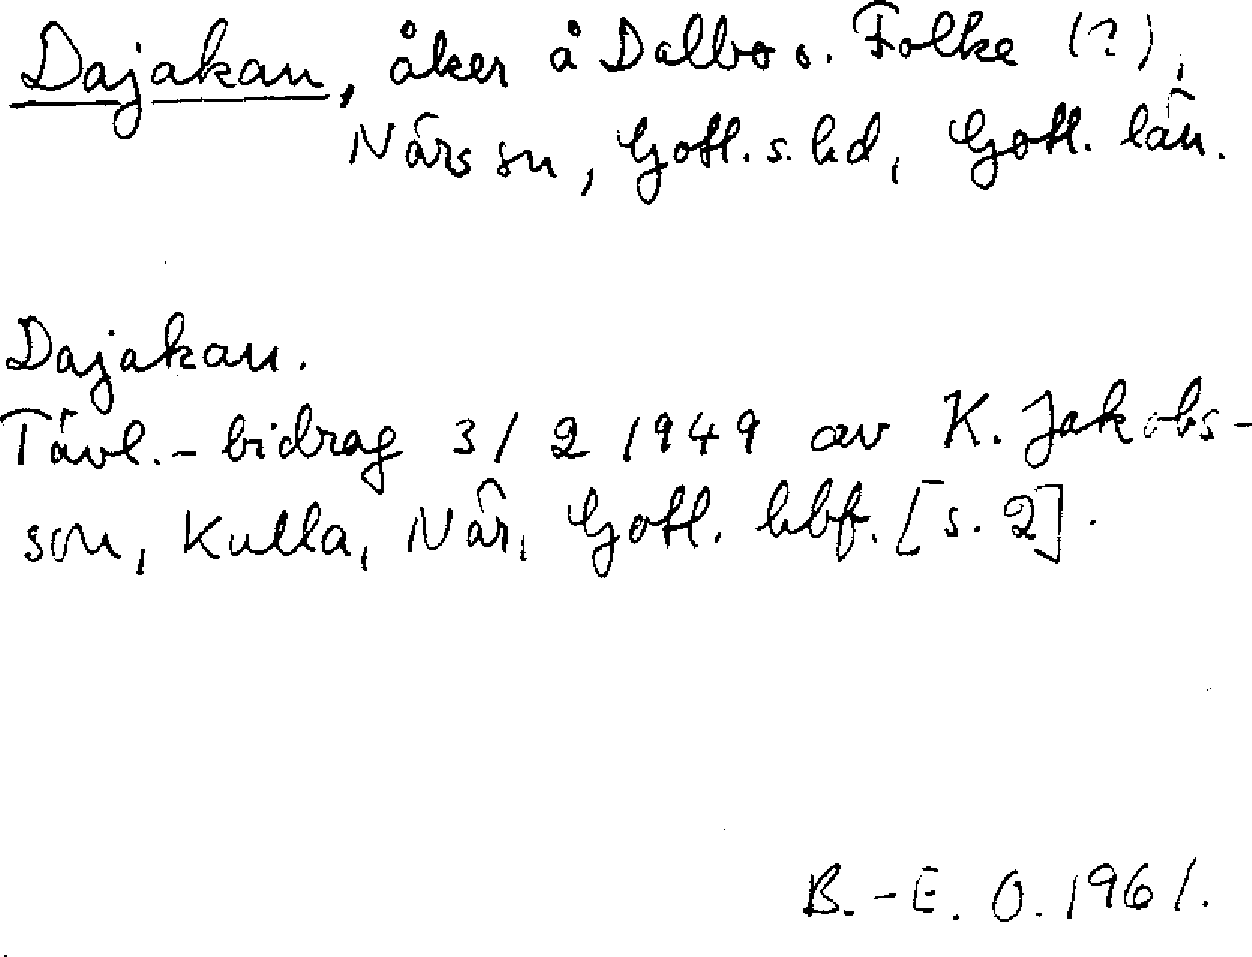 Dajakan, åker å Dalbo o. Folke (?),
Närs sn, Gotl. s. hd, Gotl. län.
Dajakan.
Tävl.-bidrag 3/2 1949 av K. Jakobs-
son, Kulla, När, Gotl. hbf. [s. 2].
B.-E. O. 1961.